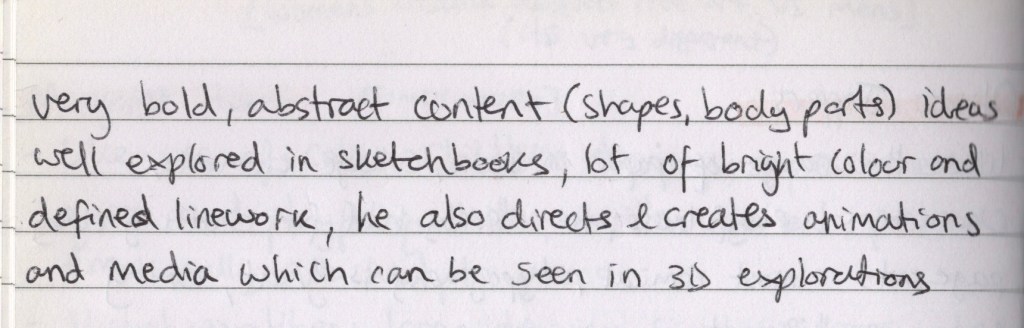 very bold, abstract content (shapes, body parts) ideas
well explored in sketchbooks, lot of bright colour and
defined linework, he also directs & creates animations
and media which can be seen in 3D explorations